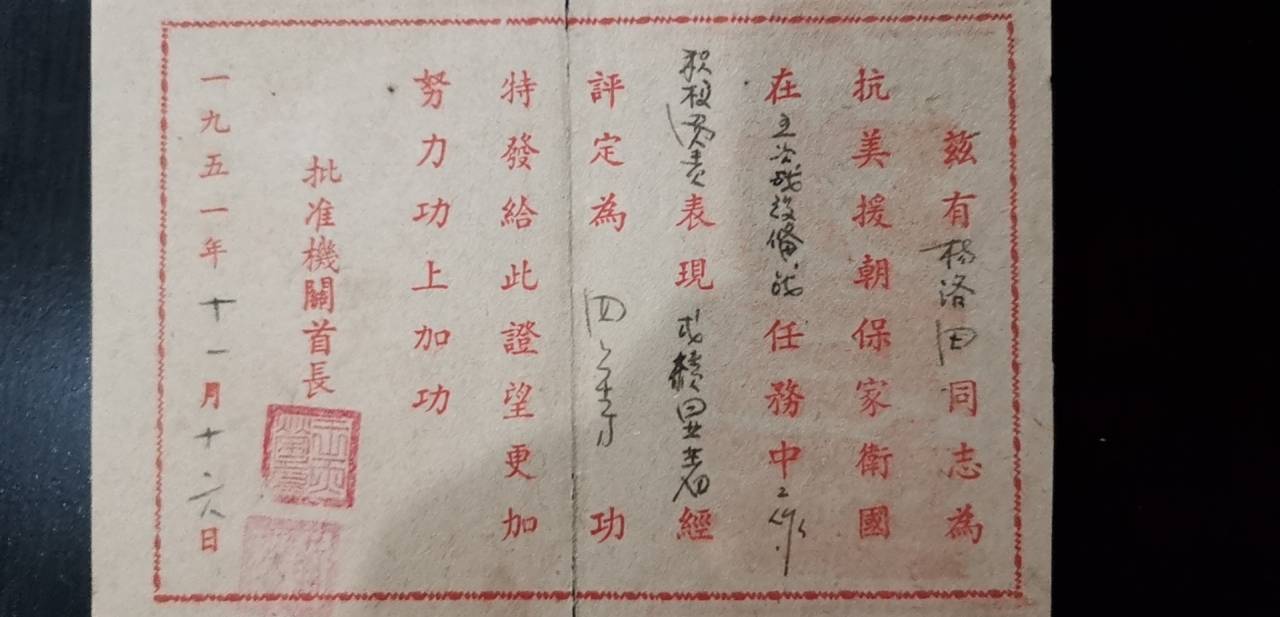 茲有楊洛田同志為
抗美援朝保家衛國
在五次战役備战任務中工作
积极負责表現成績显著經
評定為四等功
特發給此證望更加
努力功上加功
批准機關首長
一九五一年十一月十六日